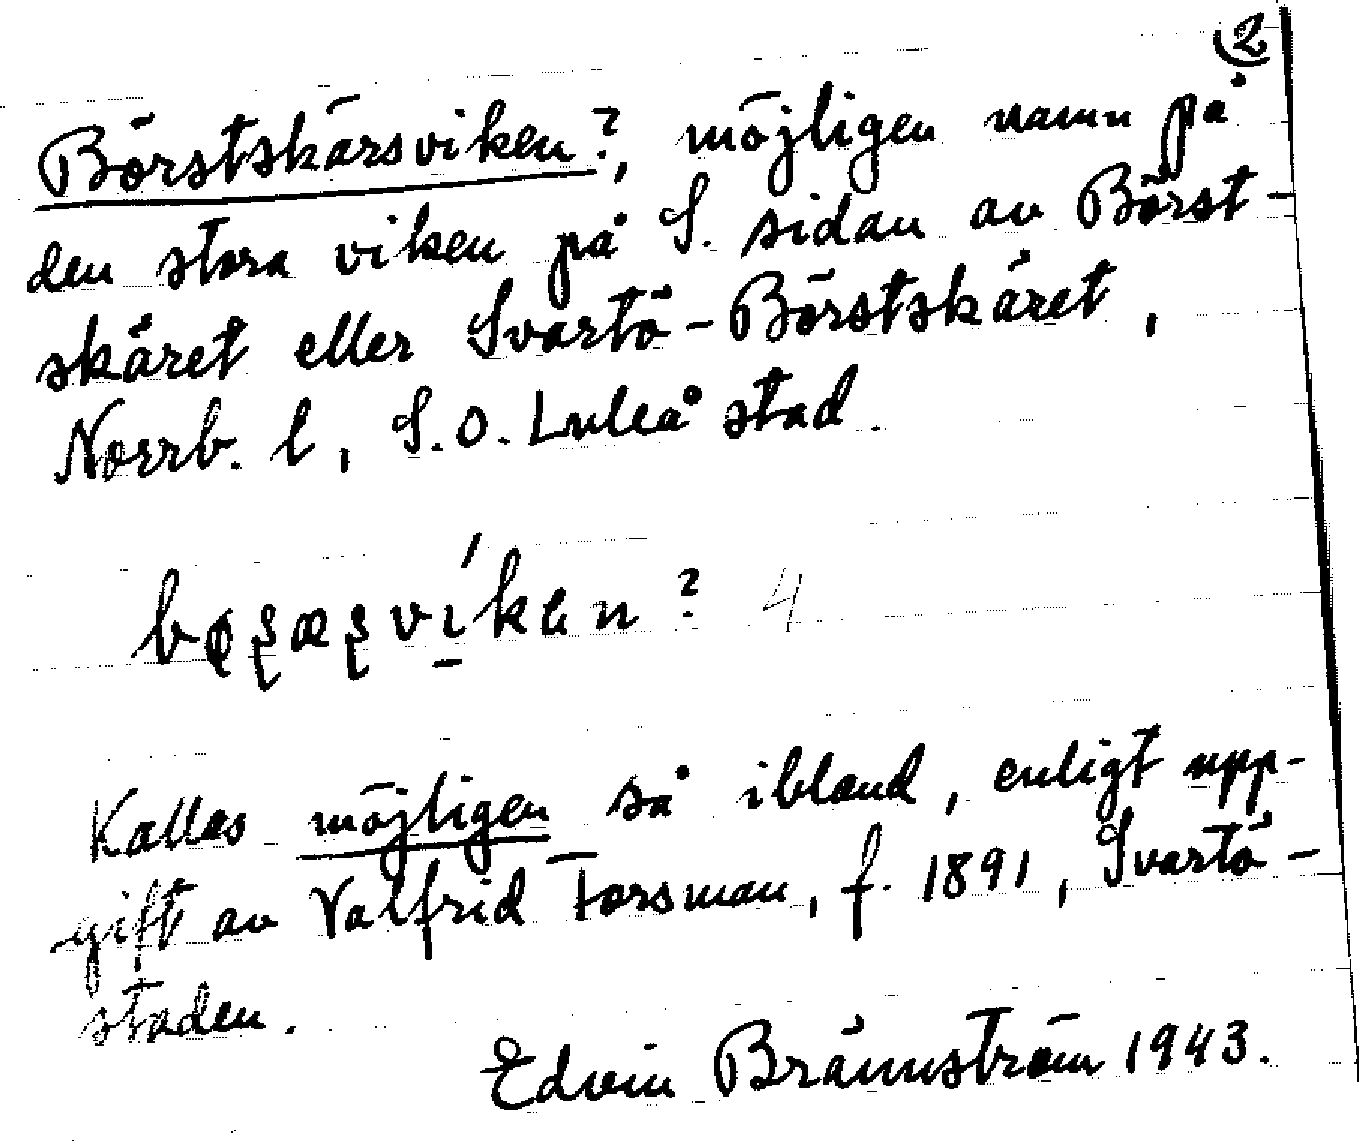 2
Börstskärsviken?, möjligen namn på
den stora viken på S. sidan av Börst-
skäret eller Svartö-Börstskäret,
Norrb. l, S.O. Luleå stad.
4
Kallas möjligen så ibland, enligt upp-
gift av Valfrid Forsman, f. 1891, Svartö-
staden.
Edvin Brännström 1943.